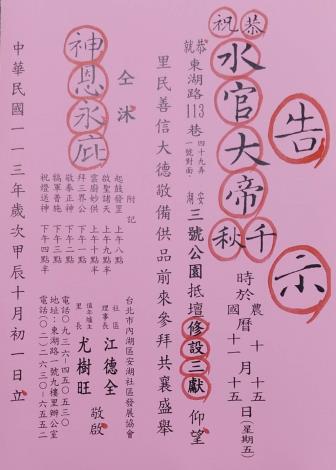 告示
恭祝
水官大帝千秋
時於
農曆十月十五日
國曆十一月十五日(星期五)
恭就東湖路113巷四十九弄一號對面‧安湖三號公園抵壇修設三獻 仰望
里民善信大德敬備供品前來參拜共襄盛舉
仝沐
神恩永庇
附記
起鼓發罡 上午八點
啟聖請天 上午八點半
雲廚妙供 上午十點半
拜三界公 下午一點
敬奉正神 下午二點
犒軍普施 下午三點
祝燈送神 下午四點半
台北市內湖區安湖社區發展協會
社區理事長 江德全
值年爐主里長 尤樹旺
敬啟
電話○九三六-四五○五三○
地址:東湖路一號九樓里辦公室
電話(○二)二六三○-六五五二
中華民國一一三年歲次甲辰十月初一日立